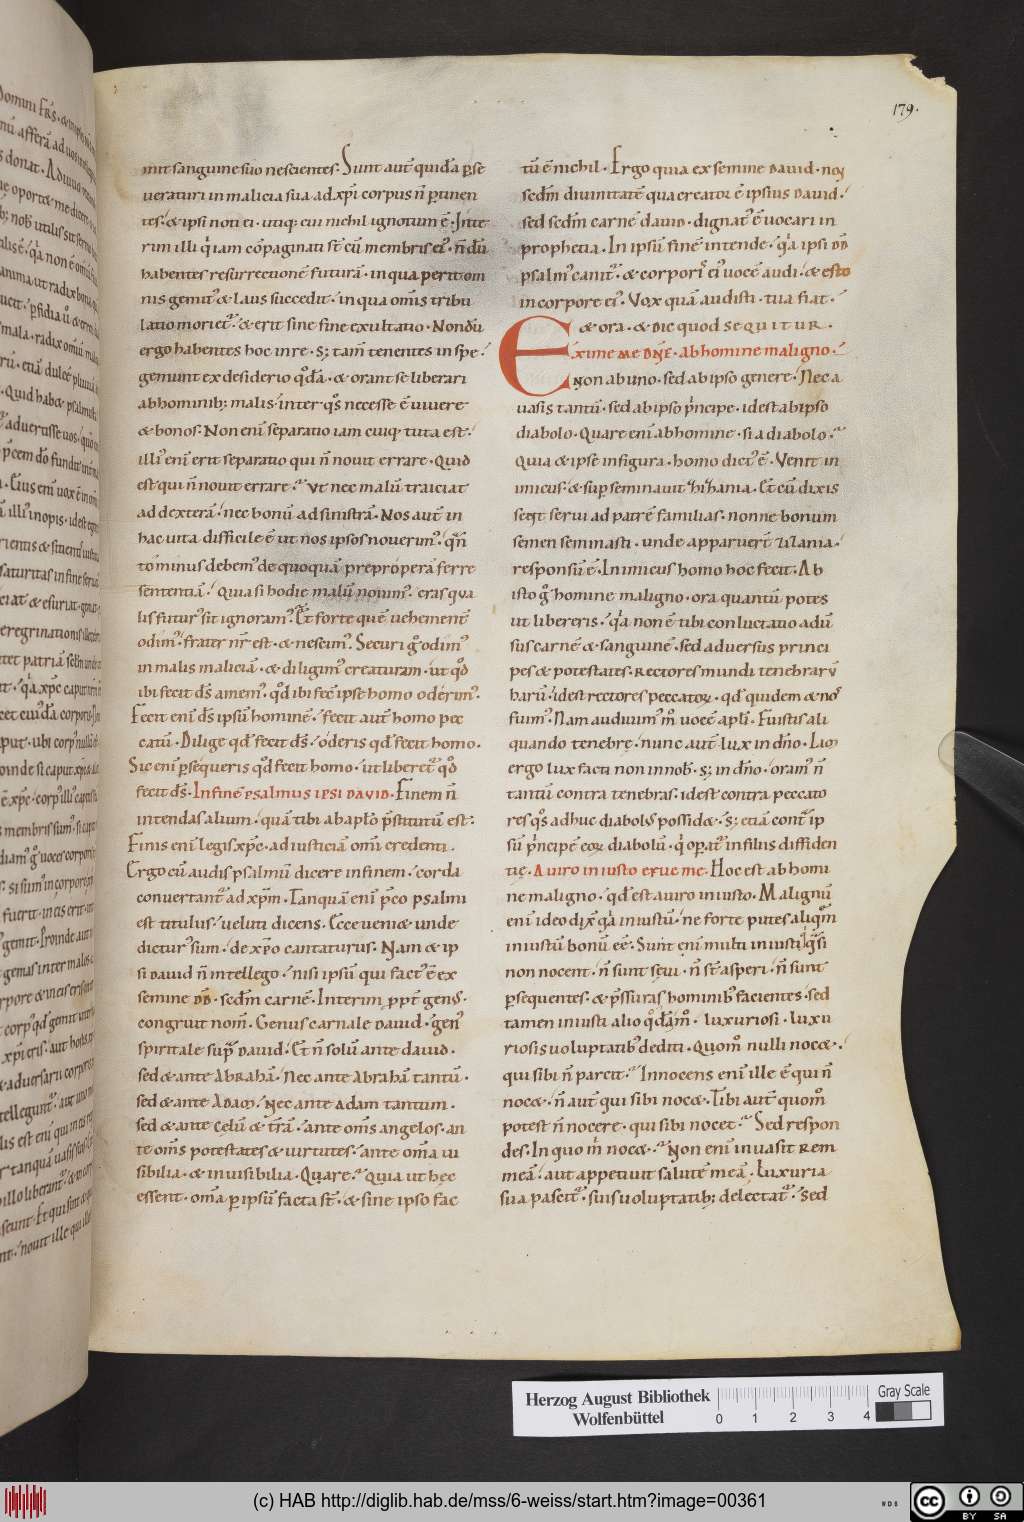 179.
mit sanguine suo nescientes. Sunt aut̄ quidā p̱se
veraturi in malicia sua ad xp̄i corpus n̄ ptinen
tes. & ipsi noti ei. utiq; cui nichil ignotum ē. Inte
rim illi qͥ iam cōpaginati st̄ cū membris ei᷒. n̄dū
habentes resurrectionē futurā. in qua perit om
nis gemit᷒ & laus succedit. in qua om̄is tribu
latio moriet᷑. & erit sine fine exultatio. Nondū
ergo habentes hoc in re. s; tam̄ tenentes in spe.
gemunt ex desiderio q͛dā. & orant se liberari
ab hominib; malis. inter q͛s necesse ē vivere
& bonos. Non enī separatio iam cuiq; tuta est.
illi᷒ enī erit separatio qui n̄ novit errare. Quid
est qui n̄ novit errare. Vt nec malū traiciat
ad dexterā. nec bonū ad sinistrā. Nos aut̄ in
hac vita difficile ē ut nos ipsos noverim᷒. qn̄
to minus debem᷒ de quoquā prepropera ferre
sententiā. Quia si hodie malū novim᷒. cras qua
lis futur᷒ sit ignoram᷒. Et forte quē vehement̄
odim᷒. frater nr̄ est. & nescim᷒. Securi g͛ odim᷒
in malis maliciā. & diligim᷒ creaturam. ut qd̄
ibi fecit dš amem᷒. qd̄ ibi fec̄ ipse homo oderim᷒.
Fecit enī dš ipsū hominē. fecit aut̄ homo pec
catū. Dilige qd̄ fecit dš. oderis qd̄ fecit homo.
Sic enī p̱sequeris qd̄ fecit homo. ut liberet᷑ qd̄
fecit dš. In finē psalmus ipsi david. Finem n̄
intendas alium. quā tibi ab aplo p̄stitutū est.
Finis enī legis xp̄c. ad iusticiā om̄i credenti.
Ergo cū audis psalmū dicere in finem. corda
convertant᷑ ad xp̄m. Tanquā enī p̄co psalmi
est titulus. veluti dicens. Ecce veni& unde
dictur᷒ sum. de xp̄o cantaturus. Nam & ip
si david n̄ intellego. nisi ipsū qui fact᷒ ē ex
semine dd̄. sed̄m carnē. Interim ppt̄ gen᷒.
congruit nom̄. Genus carnale david. gen᷒
spiritale sup̄ david. Et n̄ solū ante david.
sed & ante Abrahā. Nec ante Abrahā tantū.
sed & ante Adam. Nec ante Adam tantum.
sed & ante cęlū & t̄rā. ante om̄s angelos. an
te om̄s potestates & virtutes. ante om̄ia vi
sibilia. & invisibilia. Quare. Quia ut hęc
essent. om̄a p̱ ipsū facta st̄. & sine ipso fac
tū ē nichil. Ergo quia ex semine david. n̄
sed̄m divinitatē qua creator ē ipsius david.
sed sed̄m carnē david. dignat᷒ ē vocari in
prophetia. In ipsū finē intende. qͥa ipsi dd̄
psalm᷒ canit᷑. & corpori ei᷒ vocē audi. & esto
in corpore ei᷒. Vox quā audisti. tua fiat.
& ora. & dic quod sequitur.
Exime me dn̄e. ab homine maligno.
Non ab uno. sed ab ipso genere. Nec a
vasis tantū. sed ab ipso pͥncipe. id est ab ipso
diabolo. Quare enī ab homine. si a diabolo.
Quia & ipse in figura. homo dict᷒ ē. Venit in
imicus. & sup̱seminavit zizania. Et cū dixis
sent servi ad patrē familias. nonne bonum
semen seminasti. unde apparuer̄t zizania.
responsū ē. Inimicus homo hoc fecit. Ab
isto g͛ homine maligno. ora quantū potes
ut libereris. qͥa non ē tibi conluctatio adū
sus carnē & sanguinē. sed adversus princi
pes & potestates. rectores mundi tenebrarū
harū. id est rectores peccatorꝝ. qd̄ quidem & no᷒
fuim᷒. Nam audivim᷒ m̊ vocē apl̄i. Fuistis ali
quando tenebrę. nunc aut̄ lux in dn̄o. Lux
ergo lux facti non in nob᷒. s; in dn̄o. oram᷒ n̄
tantū contra tenebras. id est contra peccato
res q͛s adhuc diabol᷒ possid&. s; etiā cont̄ ip
sū pͥncipē eorꝝ diabolū. qͥ operat᷑ in filiis diffiden
tię. A viro iniusto erue me. Hoc est ab homi
ne maligno. qd̄ est a viro iniusto. Malignū
enī ideo dix̄ qͥa iniustū. ne forte putes aliq̄m
iniustū bonū eē. Sunt enī multi iniusti q̄si
non nocent. n̄ sunt sęvi. n̄ st̄ asperi. n̄ sunt
p̱sequentes. & p̄ssuras hominib᷒ facientes. sed
tamen iniusti alio q͛dā m̊. luxuriosi. luxu
riosis voluptatib᷒ dediti. Quom̊ nulli noc&.
qui sibi n̄ parcit. Innocens enī ille ē qui n̄
noc&. n̄ aut̄ qui sibi noc&. Tibi aut̄ quom̊
potest n̄ nocere. qui sibi nocet. Sed respon
des. In quo mͥ noc&. Non enī invasit rem
meā. aut appetivit salutē meā. Luxuria
sua pascit᷑. suis voluptatib; delectat᷑. Sed
Herzog August Bibliothek
Wolfenbüttel
0 1 2 3 4
Gray Scale
(c) HAB http://diglib.hab.de/mss/6-weiss/start.htm?image=00361
cc BY SA